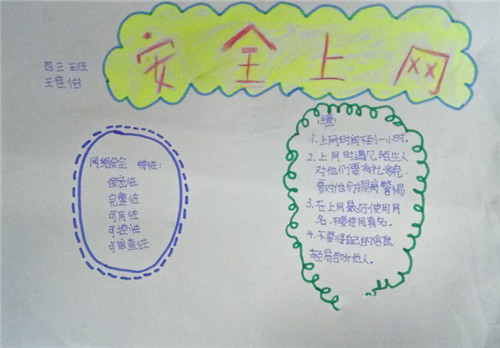 安全上网
四三班
网络安全 特征:
保密性
完整性
可用性
可控性
可审查性
1.上网时间不到一小时.
2.上网时遇见陌生人
对他们要有
要对他们提高警惕
3.在上网最好使用网
名,不要使用真名。
4.不要将自己的信息
轻易告诉他人。